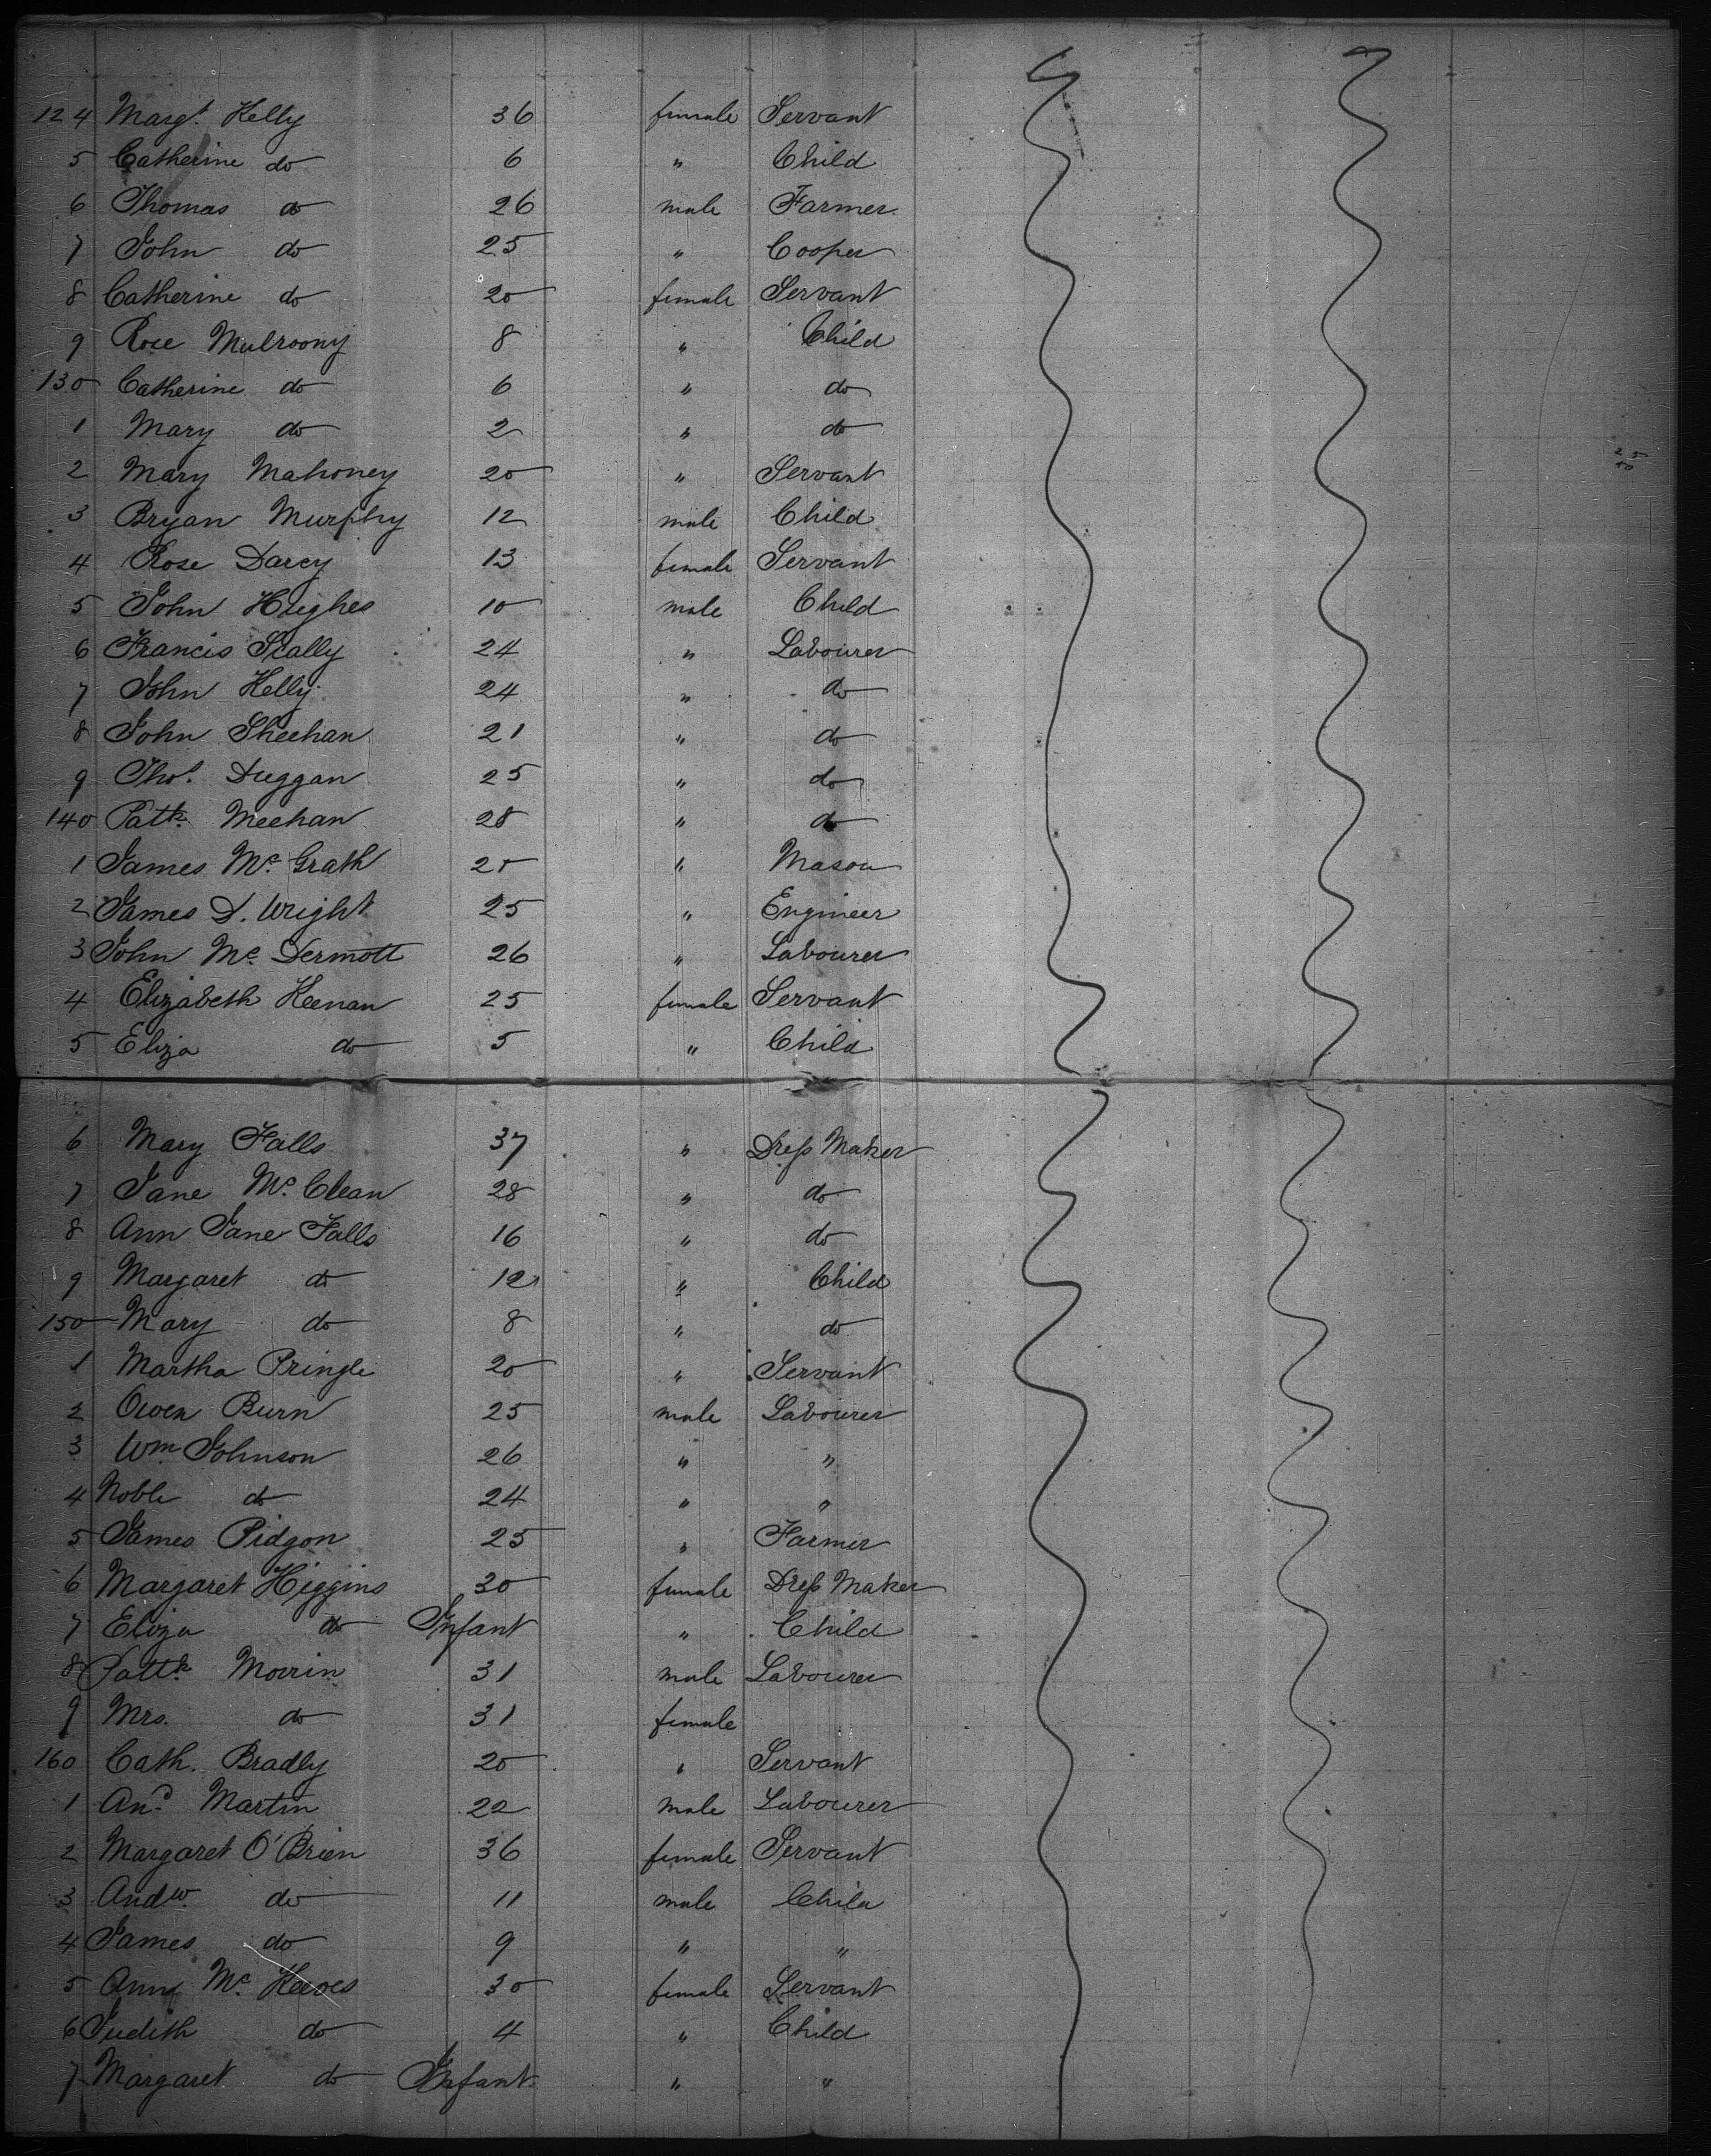 124 Margt. Kelly 36 female Servant
5 Catherine do 6 " Child
6 Thomas do 26 male Farmer
7 John do 25 " Cooper
8 Catherine do 20 female Servant
9 Rose Mulroony 8 " Child
130 Catherine do 6 " do
1 Mary do 2 " do
2 Mary Mahoney 20 " Servant
3 Bryan Murphy 12 male Child
4 Rose Darcy 13 female Servant
5 John Hughes 10 male Child
6 Francis Scally 24 " Labourer
7 John Kelly 24 " do
8 John Sheehan 21 " do
9 Thos. Duggan 25 " do
140 Patk. Meehan 28 " do
1 James Mc. Grath 20 " Mason
2 James D. Wright 25 " Engineer
3 John Mc. Dermott 26 " Labourer
4 Elizabeth Keenan 25 female Servant
5 Eliza do 5 " Child
6 Mary Falls 37 " Dress Maker
7 Jane Mc. Clean 28 " do
8 Ann Jane Falls 16 " do
9 Margaret do 12 " Child
150 Mary do 8 " do
1 Martha Pringle 20 " Servant
2 Owen Burn 25 male Labourer
3 Wm. Johnson 26 " "
4 Noble do 24 " "
5 James Pidgon 25 " Farmer
6 Margaret Higgins 30 female Dress Maker
7 Eliza do Infant " Child
8 Pattk. Morrin 31 male Labourer
9 Mrs. do 31 female
160 Cath. Bradly 20 " Servant
1 And. Martin 22 male Labourer
2 Margaret O'Brien 36 female Servant
3 Andw. do 11 male Child
4 James do 9 " "
5 Ann Mc. Keeves 30 female Servant
6 Judith do 4 " Child
7 Margaret do Infant " "